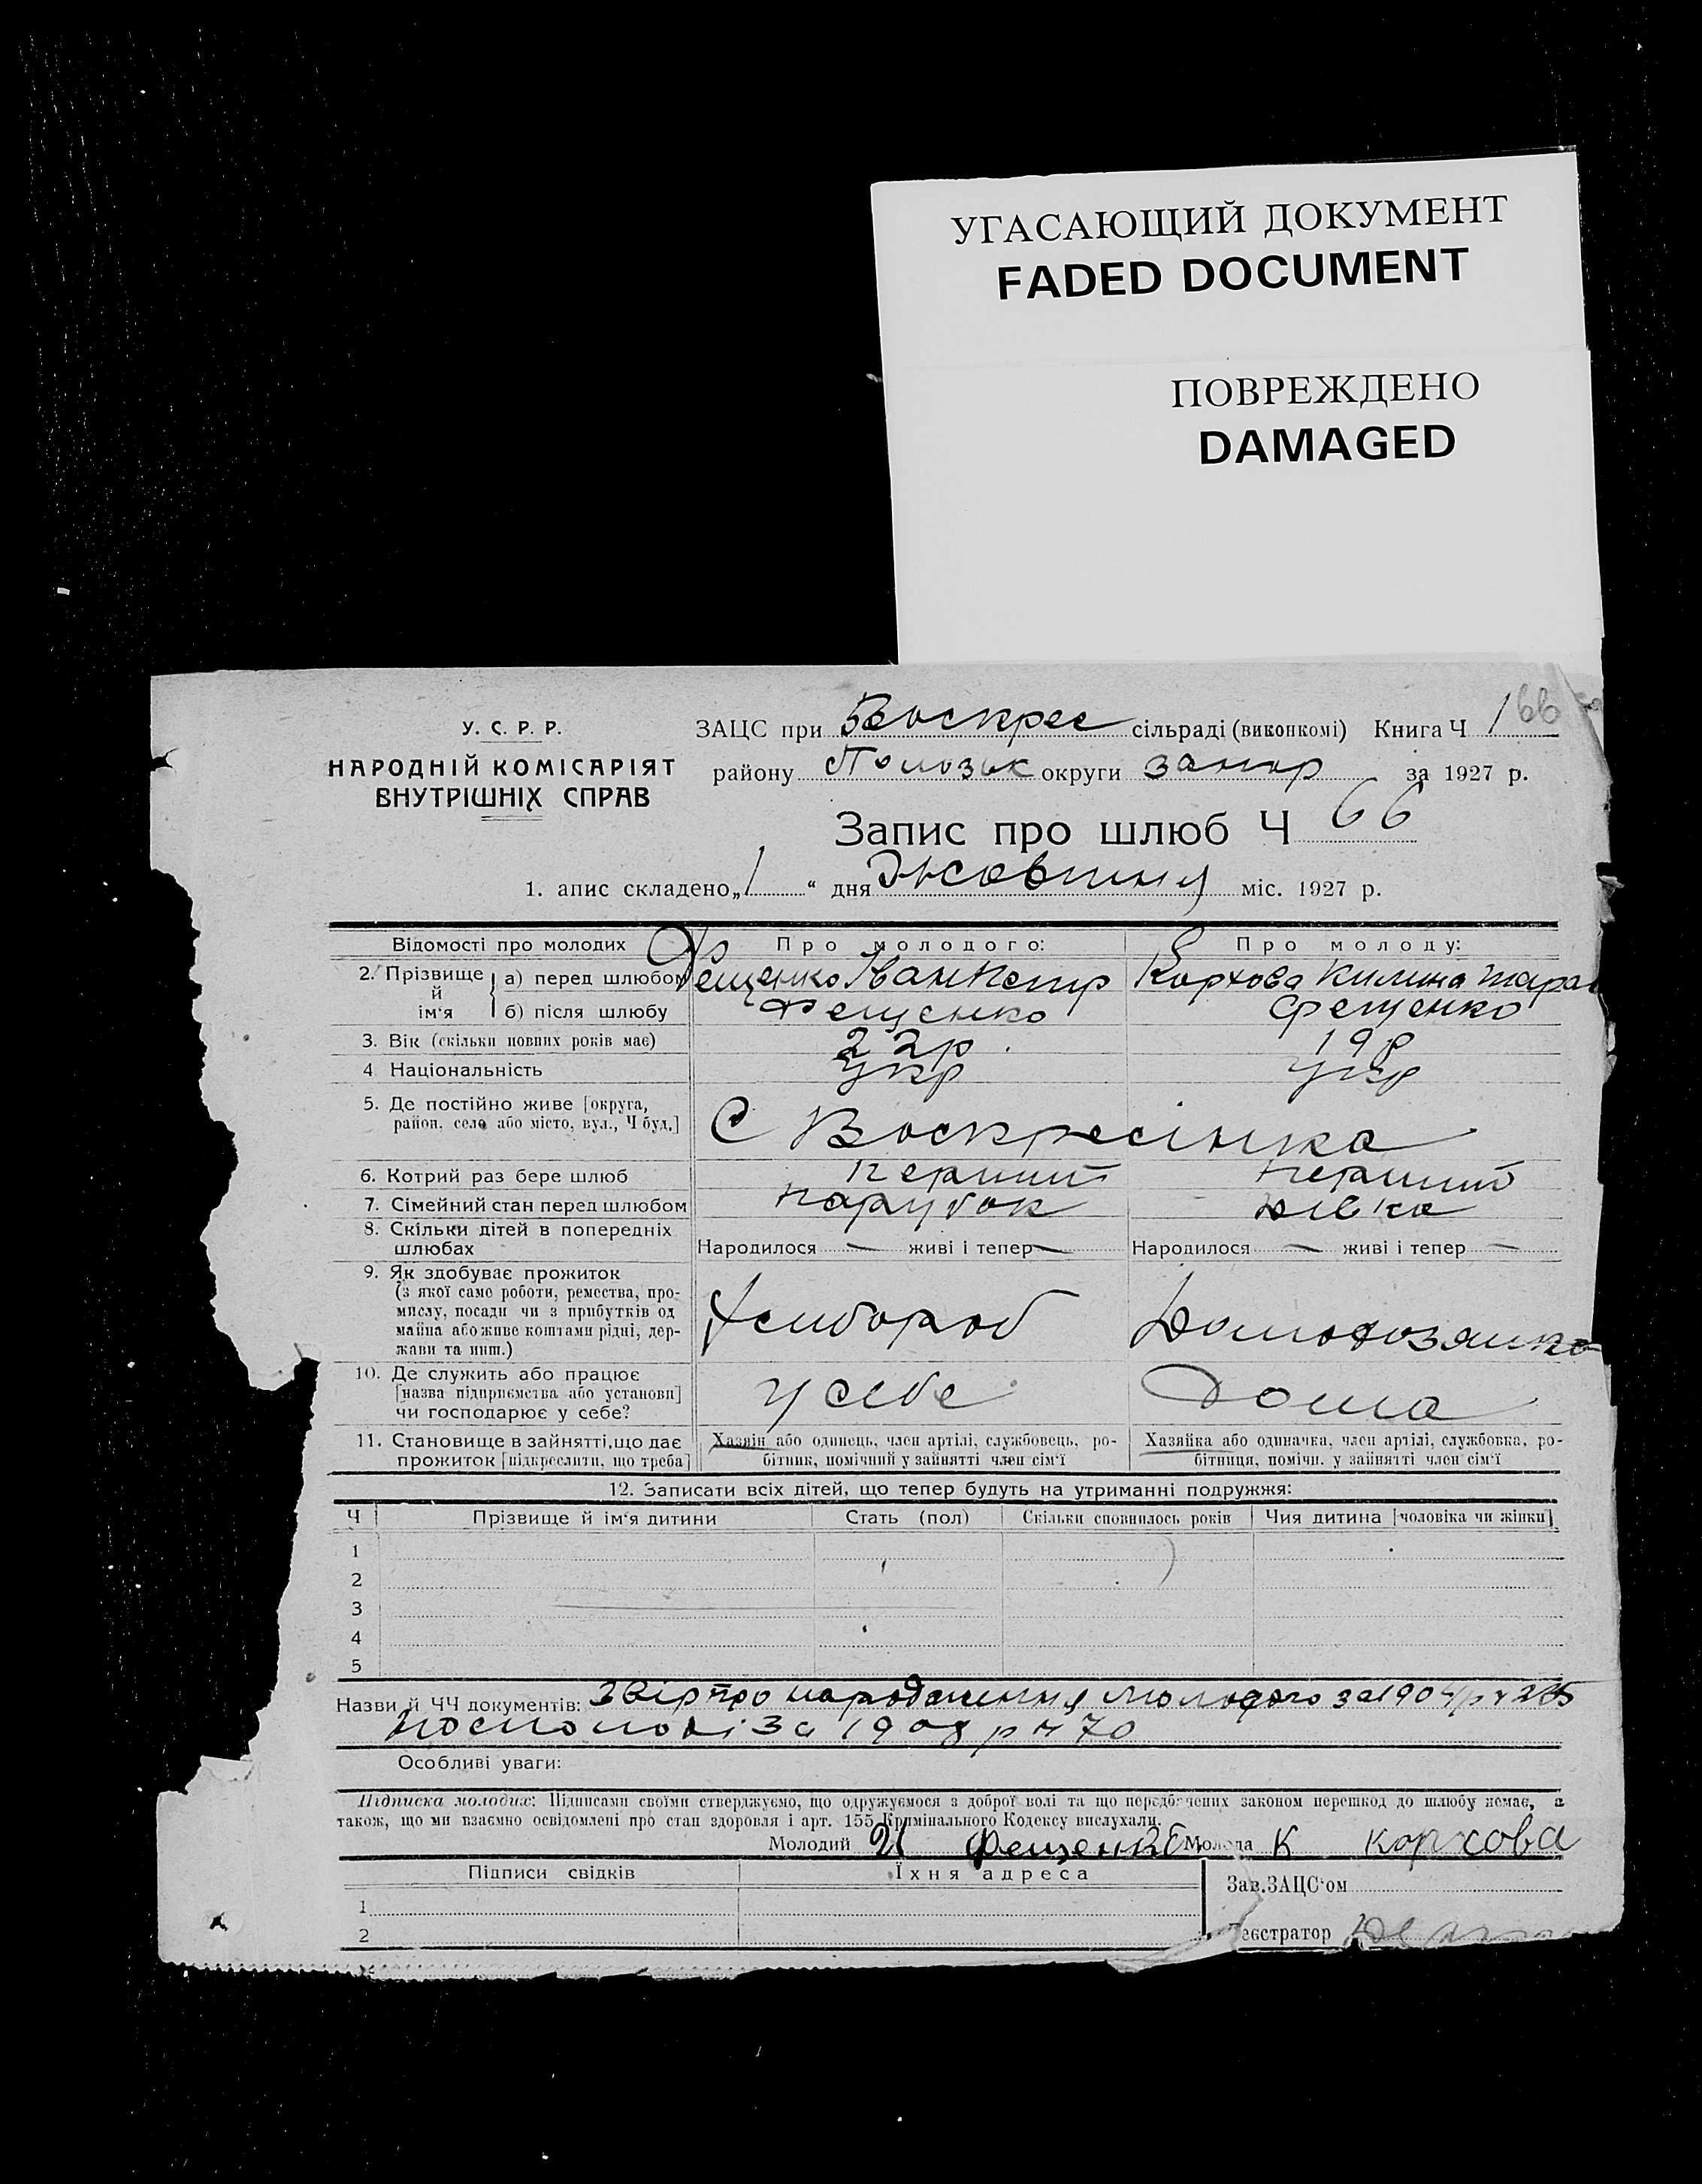 УГАСАЮЩИЙ ДОКУМЕНТ
FADED DOCUMENT
ПОВРЕЖДЕНО
DAMAGED
У. С. Р. Р.
НАРОДНІЙ КОМІСАРІЯТ
ВНУТРІШНІХ СПРАВ
ЗАЦС при Воскрес сільраді (виконкомі) Книга Ч 1 66
району Пологівськ округи Запор за 1927 р.
Запис про шлюб Ч 66
1. апис складено „1“ дня Жовтня міс. 1927 р.
Відомості про молодих Про молодого: Про молоду:
2. Прізвище й ім‘я а) перед шлюбом Фещенко Іван Петр Корхова Килина Тарас
б) після шлюбу Фещенко Фещенко
3. Вік (скільки повних років має) 22 р. 19 р
4 Національність Укр Укр
5. Де постійно живе [округа,
район, село або місто, вул., Ч буд.] С Воскресінка
6. Котрий раз бере шлюб перший перший
7. Сімейний стан перед шлюбом парубок дівка
8. Скільки дітей в попередніх
шлюбах Народилося — живі і тепер — Народилося — живі і тепер —
9. Як здобуває прожиток
(з якої саме роботи, ремества, про-
мислу, посади чи з прибутків од
майна або живе коштами рідні, дер-
жави та инш.) Хлибороб Домохозяйка
10. Де служить або працює
[назва підприємства або установи]
чи господарює у себе? у себе Дома
11. Становище в зайнятті, що дає
прожиток [підкреслити, що треба]
Хазяїн або одинець, член артілі, службовець, ро-
бітник, помічний у зайнятті член сім‘ї
Хазяйка або одиначка, член артілі, службовка, ро-
бітниця, помічн. у зайнятті член сім‘ї
12. Записати всіх дітей, що тепер будуть на утриманні подружжя:
Ч Прізвище й ім‘я дитини Стать (пол) Скільки сповнилось років Чия дитина [чоловіка чи жінки]
1
2
3
4
5
Назви й ЧЧ документів: про народження молодого за 1904 р ч
за 1908 р ч 70
Особливі уваги:
Підписка молодих: Підписами своїми стверджуємо, що одружуємося з доброї волі та що передбачених законом перешкод до шлюбу немає, а
також, що ми взаємно освідомлені про стан здоровля і арт. 155 Крімінального Кодексу вислухали.
Молодий И Фещенко Молода К Корхова
Підписи свідків Їхня адреса
1
2
Зав. ЗАЦС‘ом
Реєстратор